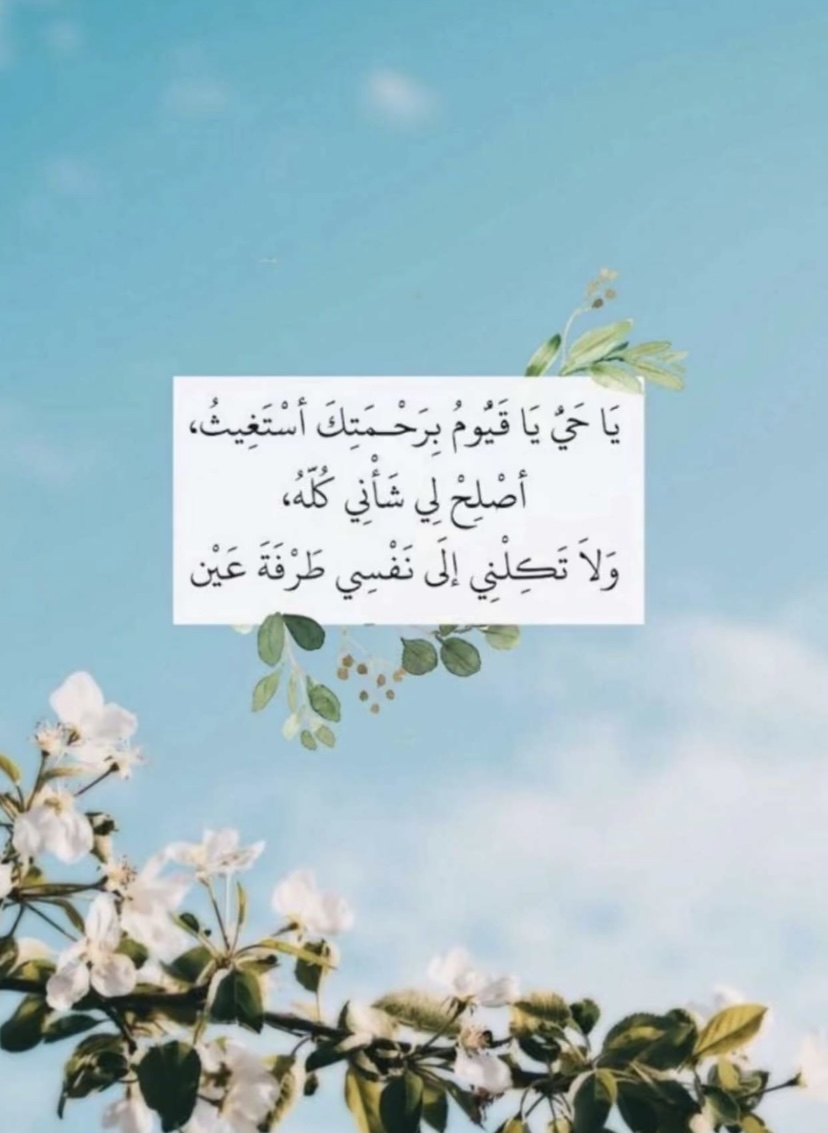 يَا حَيُّ يَا قَيُّومُ بِرَحْـمَتِكَ أسْتَغِيثُ،
أصْلِحْ لِي شَأْنِي كُلَّهُ،
وَلاَ تَكِلْنِي إلَى نَفْسِي طَرْفَةَ عَيْن